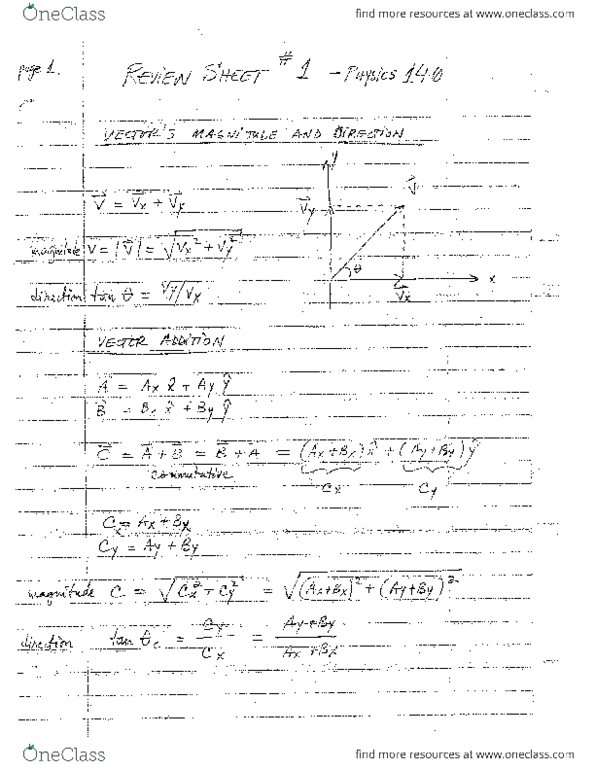 OneClass
find more resources at www.oneclass.com
page 1.
REVIEW SHEET #1 - PHYSICS 140
VECTOR'S MAGNITUDE AND DIRECTION
y
V⃗
V⃗y
θ
x
V⃗x
V⃗ = V⃗x + V⃗y
magnitude V = |V⃗| = √(Vx² + Vy²)
direction tan θ = Vy/Vx
VECTOR ADDITION
A⃗ = Ax x̂ + Ay ŷ
B⃗ = Bx x̂ + By ŷ
C⃗ = A⃗ + B⃗ = B⃗ + A⃗ = (Ax+Bx) x̂ + (Ay+By) ŷ
commutative Cx Cy
Cx = Ax + By
Cy = Ay + By
magnitude C = √(Cx² + Cy²) = √((Ax+Bx)² + (Ay+By)²)
direction tan θc = Cy/Cx = (Ay+By)/(Ax+Bx)
OneClass
find more resources at www.oneclass.com